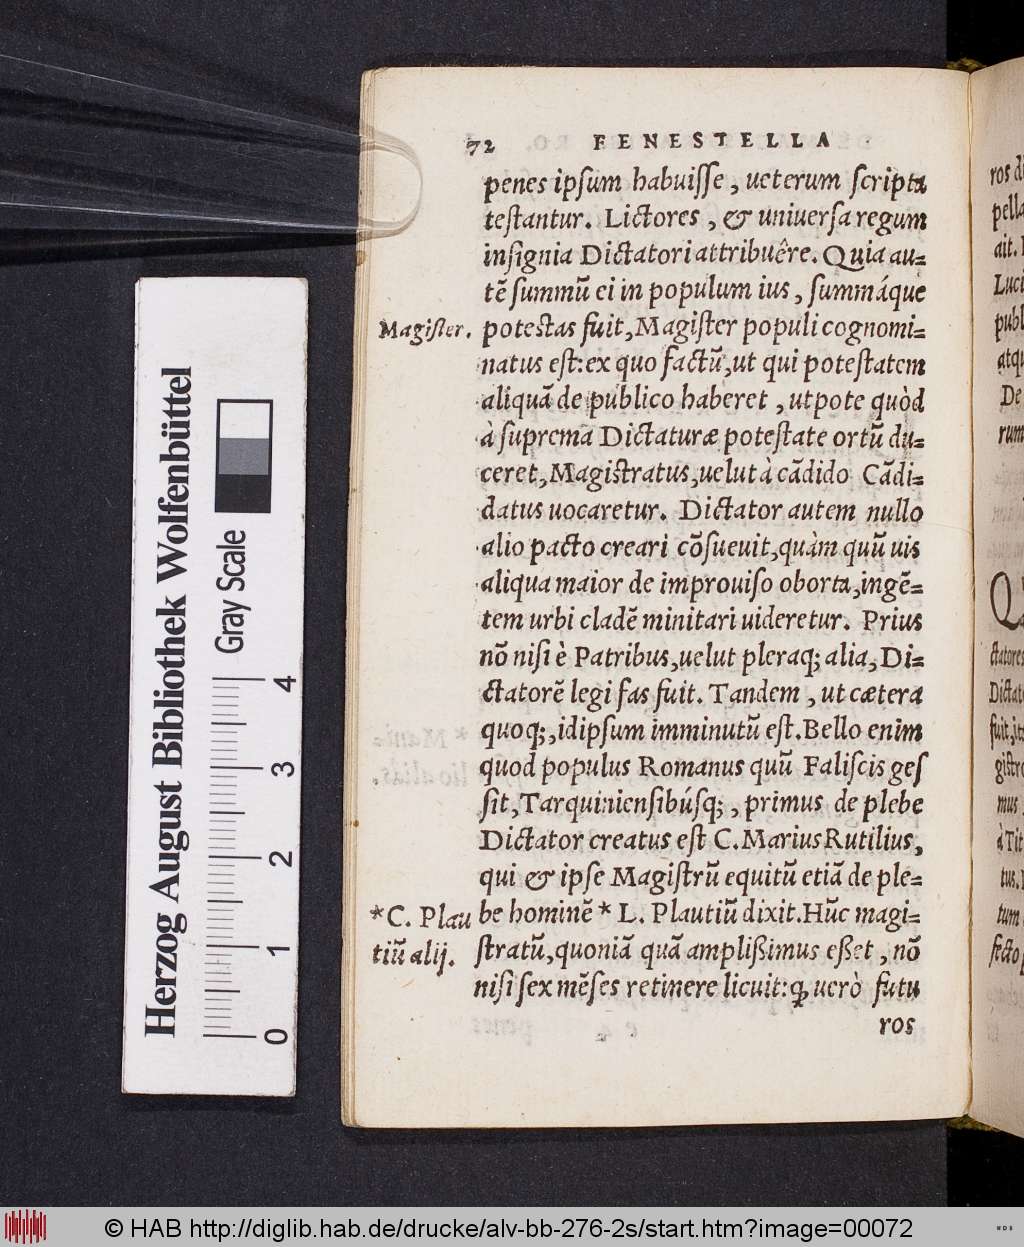 72 FENESTELLA
penes ipsum habuisse, ueterum scripta
testantur. Lictores, & uniuersa regum
insignia Dictatori attribuêre. Quia au=
tē summū ei in populum ius, summáque
Magister.
potestas fuit, Magister populi cognomi=
natus est: ex quo factū, ut qui potestatem
aliquā de publico haberet, utpote quòd
à suprema Dictaturæ potestate ortū du=
ceret, Magistratus, uelut à cādido Cādi=
datus uocaretur. Dictator autem nullo
alio pacto creari cōsueuit, quàm quū uis
aliqua maior de improuiso oborta, ingē=
tem urbi cladē minitari uideretur. Prius
nō nisi è Patribus, uelut pleraq; alia, Di=
ctatorē legi fas fuit. Tandem, ut cætera
quoq;, idipsum imminutū est. Bello enim
quod populus Romanus quū Faliscis ges
sit, Tarquiniensibúsq;, primus de plebe
Dictator creatus est C. Marius Rutilius,
qui & ipse Magistrū equitū etiā de ple=
*C. Plau
tiū alij.
be hominē * L. Plautiū dixit. Hūc magi=
stratū, quoniā quā amplißimus eßet, nō
nisi sex mēses retinere licuit: ꝙ uerò futu
ros
ros di
pella
ait.
Luct
publ
atqu
De
rum
ctatores
Dictat
fuit, it
gistr
mus
à Tit
tus.
tum
fecto
Herzog August Bibliothek Wolfenbüttel
Gray Scale
0 1 2 3 4
© HAB http://diglib.hab.de/drucke/alv-bb-276-2s/start.htm?image=00072
WDB